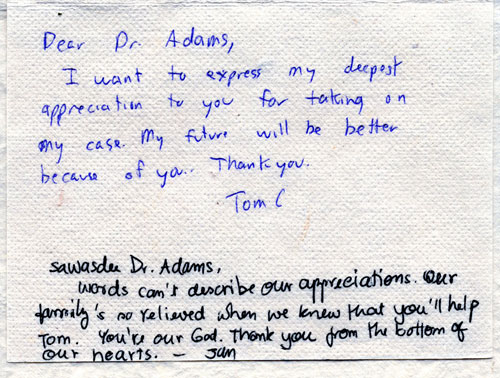 Dear Dr. Adams,
I want to express my deepest
appreciation to you for taking on
my case. My future will be better
because of you.. Thank you.
Tom C
sawasdee Dr. Adams,
words can't describe our appreciations. Our
family's so relieved when we knew that you'll help
Tom. You're our God. Thank you from the bottom of
our hearts. – Jan